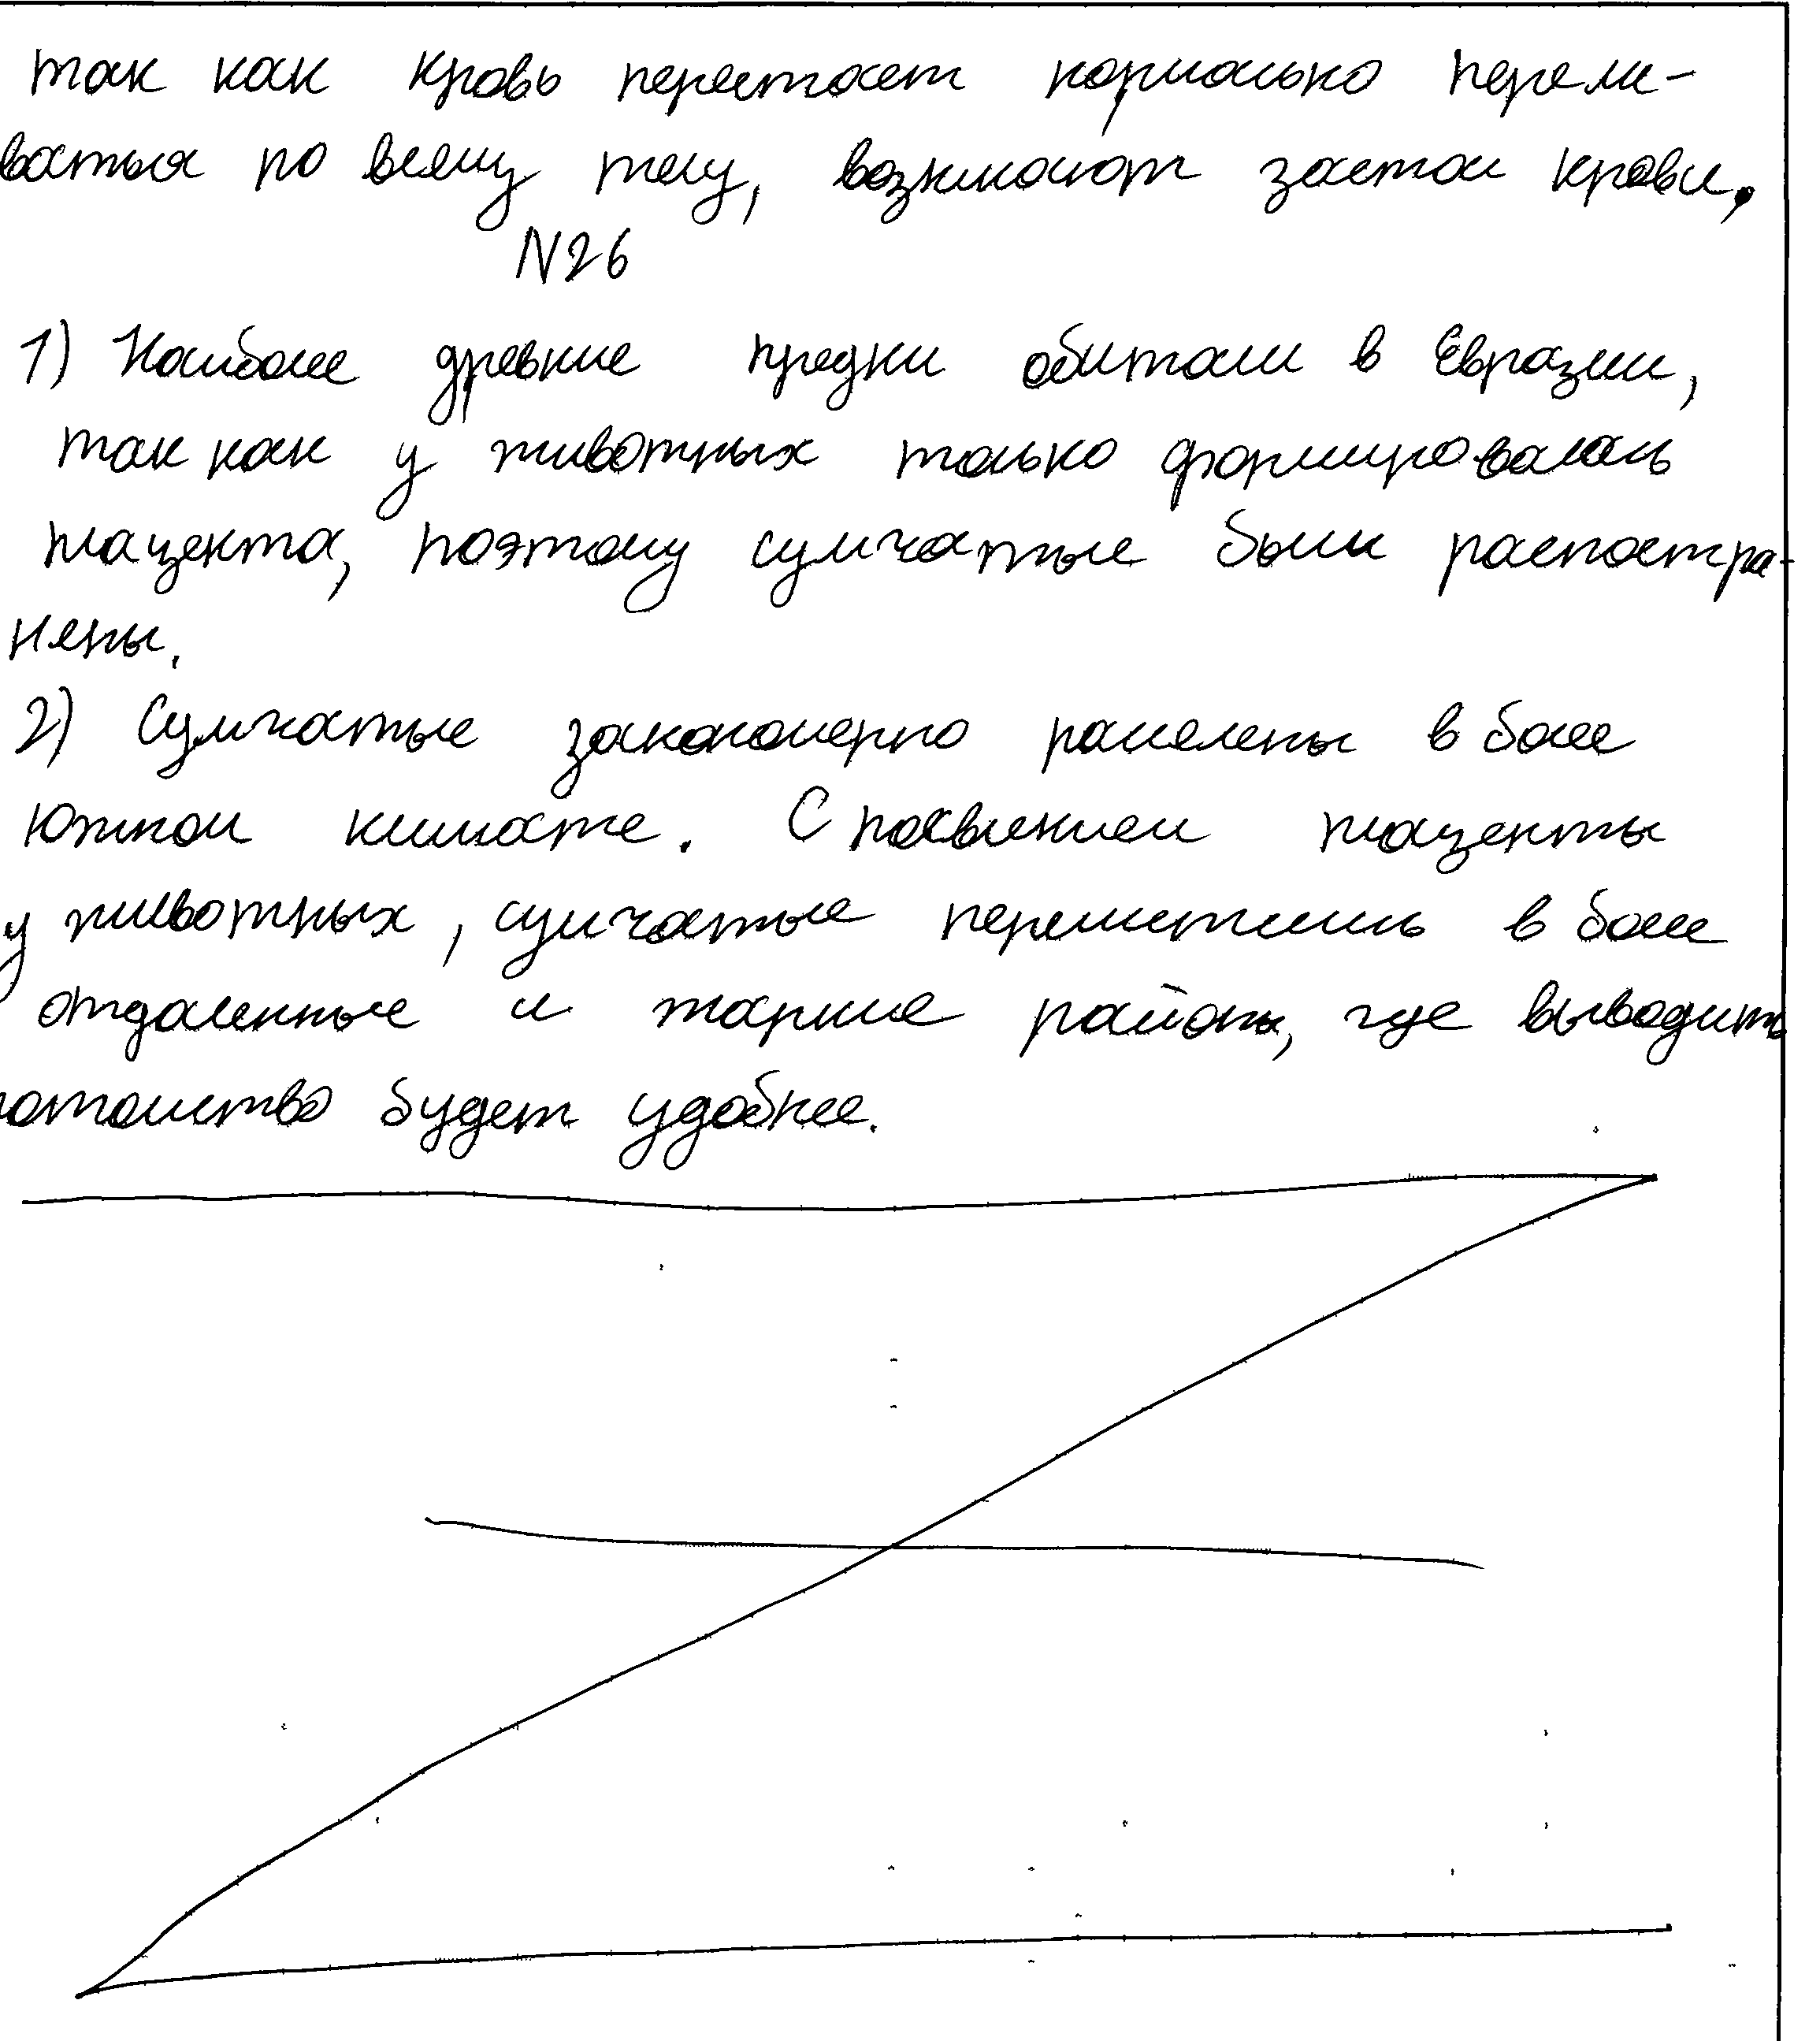 так как кровь перестает нормально перели-
ваться по всему телу, возникают застои крови.
N26
1) Наиболее древние предки обитали в Евразии,
так как у животных только формировалась
плацента, поэтому сумчатые были распостра-
нены.
2) Сумчатые закономерно расселены в более
южном климате. С появлением плаценты
у животных, сумчатые переместились в более
отдаленные и жаркие районы, где выводить
потомство будет удобнее.